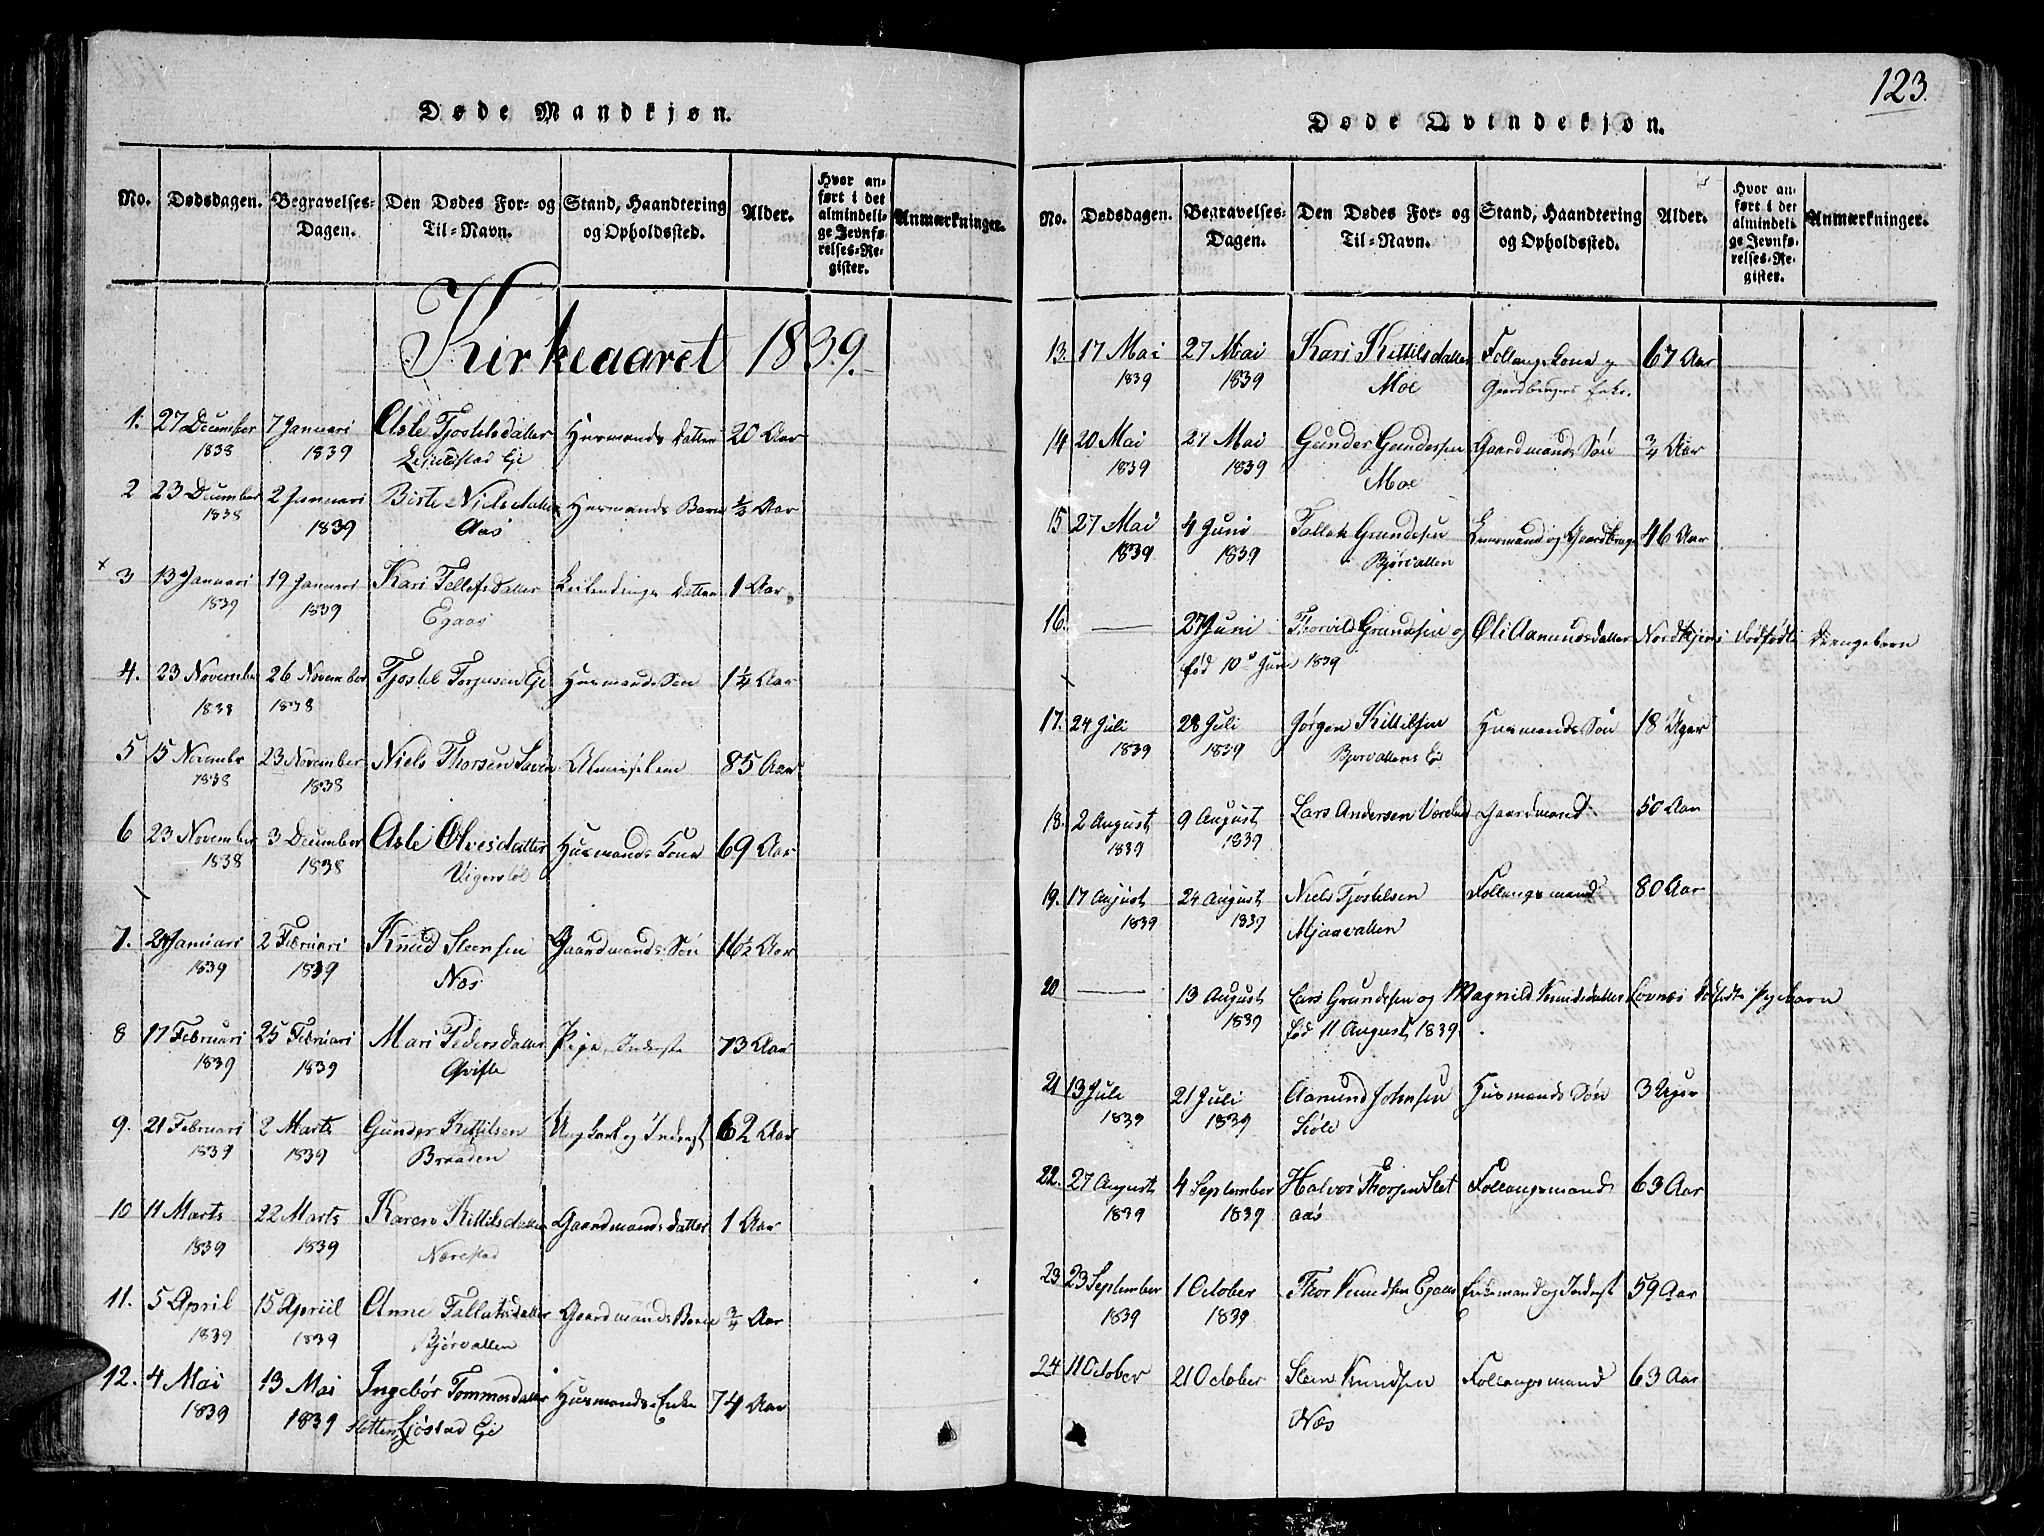 123.
Døde Mandkjøn.
No. Dødsdagen. Begravelses-Dagen. Den Dødes For- og Til-Navn. Stand, Haandtering og Opholdssted. Alder. Hvor anført i det almindelige Jevnførelses-Register. Anmærkninger.
Kirkeaaret 1839.
1. 27 December 7 Januari Asle Tjostelsdatter Husmands Datter 20 Aar
1838 1839 Eje
2 23 December 2 Januari Birte Nielsdatter Husmands Barn ½ Aar
1838 1839 Aas
x 3 13 Januari 19 Januari Kari Tellefsdatter Leilendings Datter 1 Aar
1839 1839 Egaas
4. 23 November 26 November Tjostel Torjusen Eje Husmands Søn 1¼ Aar
1838 1838
5 15 Novembr 23 November Niels Thorsen Almisselem 85 Aar
1838 1838
6 23 November 3 December Asle Olvesdatter Husmands Kone 69 Aar
1838 1838 Vigerstøl
7. Januari 2 Februari Knud Steensen Gaardmands Søn 16½ Aar
1839 1839 Næs
8 17 Februari 25 Februari Mari Pedersdatter Pige, Inderste 73 Aar
1839 1839 Qvifte
9. 21 Februari 2 Marts Gunder Kittilsen Ungkarl og Inderst 62 Aar
1839 1839 Braaden
10 11 Marts 22 Marts Karen Kittilsdatter Gaardmands datter 1 Aar
1839 1839 Nærestad
11. 5 April 15 Apriil Anne Tallaksdatter Gaardmands Barn ¾ Aar
1839 1839 Bjørvatten
12. 4 Mai 13 Mai Ingebør Tommesdatter Husmands Enke 74 Aar
1839 1839 Ljøstad Eje
Døde Qvindekjøn.
No. Dødsdagen. Begravelses-Dagen. Den Dødes For- og Til-Navn. Stand, Haandtering og Opholdssted. Alder. Hvor anført i det almindelige Jevnførelses-Register. Anmærkninger.
13. 17 Mai 27 Mai Kari Kittilsdatter Follaugs Kone og 67 Aar
1839 1839 Moe Gaardbrugers Enke.
14 20 Mai 27 Mai Gunder Gundersen Gaardmands Søn ¾ Aar
1839 1839 Moe
15 27 Mai 4 Juni Tallak Grundesen Lensmand og Gaardbruger 46 Aar
1839 1839 Bjørvatten
16. — 27 Juni Thorvild Grundesen og Øli Aamundsdatter dødfødte Drengebarn
fød 10 Juni 1839
17. 24 Juli 28 Juli Jørgen Kittilsen Husmands Søn 18 Uger
1839 1839 Bjorvattens Eje
18. 2 August 9 August Lars Andersen Gaardmand 50 Aar
1839 1839
19. 17 August 24 August Niels Tjostelsen Follaugsmand 80 Aar
1839 1839 Mjaavatten
20 — 13 August Lars Grundesen og Magnild Knudsdatter dødfødte Pigebarn
1839 fød 11 August 1839.
21 13 Juli 21 Juli Aamund Johnsen Husmands Søn 3 Uger
1839 1839 Støle
22. 27 August 4 September Halvor Thorsen Slet Follaugsmand 63 Aar
1839 1839 aas
23 23 September 1 October Thor Knudsen Egaas Enkemand og Inderst 59 Aar
1839 1839
24 11 October 21 October Steen Knudsen Follaugsmand 63 Aar
Næs